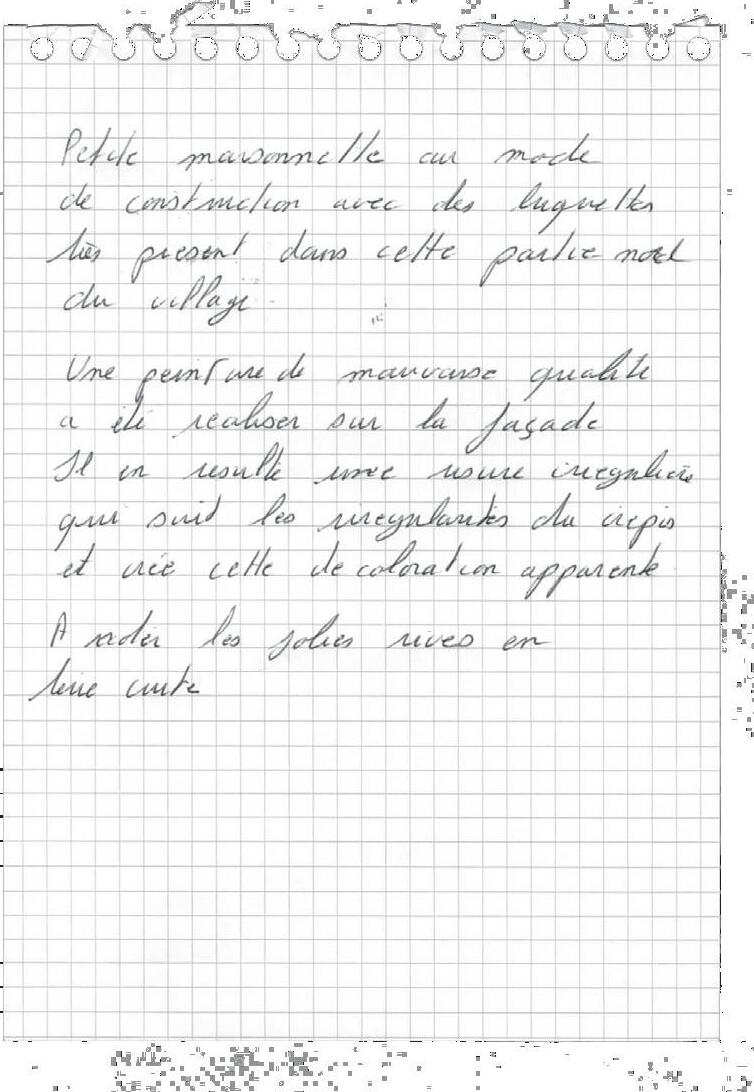 Petite maisonnette au mode
de construction avec des luquettes
très présent dans cette partie nord
du village.
Une peinture de mauvaise qualité
a été réaliser sur la façade
Il en resulte une usure irregulière
qui suit les irregularités du crépis
et crée cette decoloration apparente
A noter les jolies rives en
terre cuite